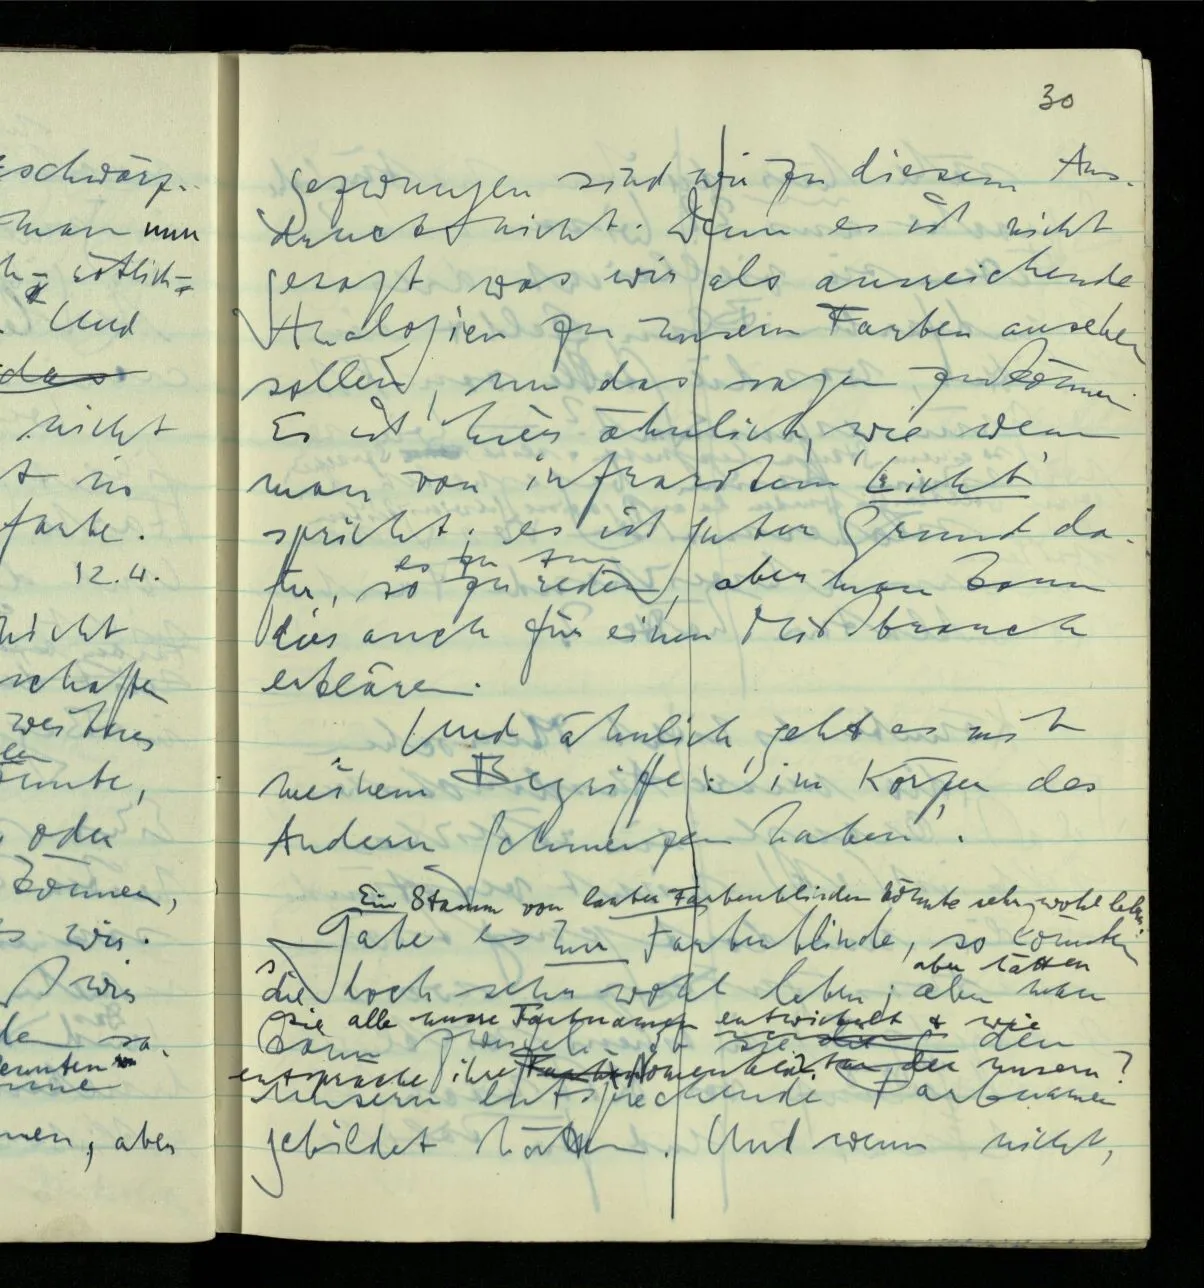 eschwärz..
man nun
rötlich=
Und
das
nicht
t ins
farbe.
12.4.
nicht
schaften
weiteres
könnte,
, oder
können,
s wir.
wir
den so.
kennten
nnen, aber
30
gezwungen sind wir zu diesem Aus-
druck nicht. Denn es ist nicht
gesagt was wir als ausreichende
Analogien zu unsern Farben ansehen
sollen, um das sagen zu können.
Es ist hier ähnlich, wie wenn
man von 'infrarotem Licht'
spricht; es ist guter Grund da-
es zu tun
für, so zu reden, aber man kann
dies auch für einen Mißbrauch
erklären.
Und ähnlich geht es mit
meinem Begriffe: 'im Körper des
Andern Schmerzen haben'.
Ein Stamm von lauter Farbenblinden könnte sehr wohl leben;
Gäbe es nur Farbenblinde, so könnten
aber hätten
sie doch sehr wohl leben; aber man
sie alle unsre Farbnamen entwickelt & wie
kann zweifeln ob sie den
entspräche ihre Nomenklatur der unsern?
unsern entsprechende Farbnamen
gebildet hätten. Und wenn nicht,